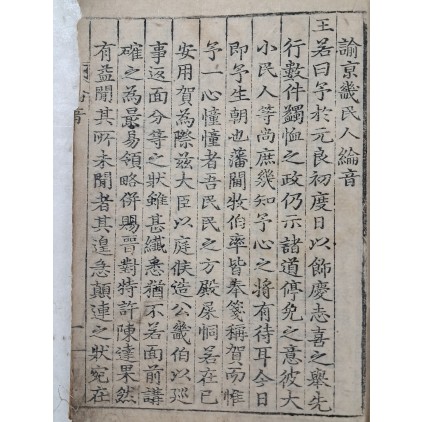 諭京畿民人綸音
王若曰予於元良初度日以飾慶志喜之舉先
行數件蠲恤之政仍示諸道停免之意彼大
小民人等尚庶幾知予心之將有待耳今日
即予生朝也藩閫牧伯率皆奉箋稱賀而惟
予一心憧憧者吾民民之方殿屎恫若在已
安用賀為際茲大臣以庭候造公畿伯以巡
事返面分等之狀雖甚纖悉猶示若面前講
確之為最易領略倂賜晉對特許陳達果然
有益聞其所未聞者其遑急顛連之狀宛在